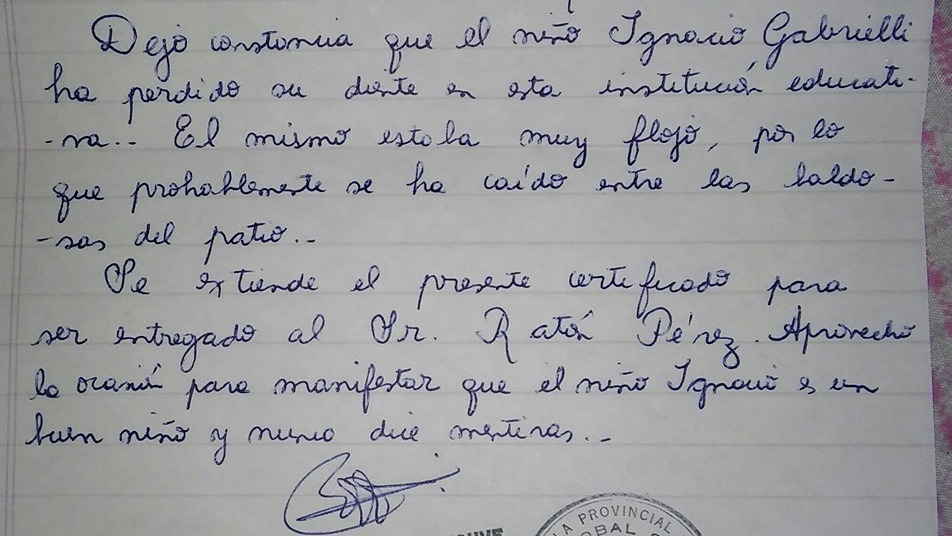 Dejo constancia que el niño Ignacio Gabrielli
ha perdido su diente en esta institución educati-
-va.. El mismo estaba muy flojo, por lo
que probablemente se ha caído entre las baldo-
-sas del patio..-
Se extiende el presente certificado para
ser entregado al Sr. Ratón Pérez. Aprovecho
la ocasión para manifestar que el niño Ignacio es un
buen niño y nunca dice mentiras..-
A PROVINCIAL